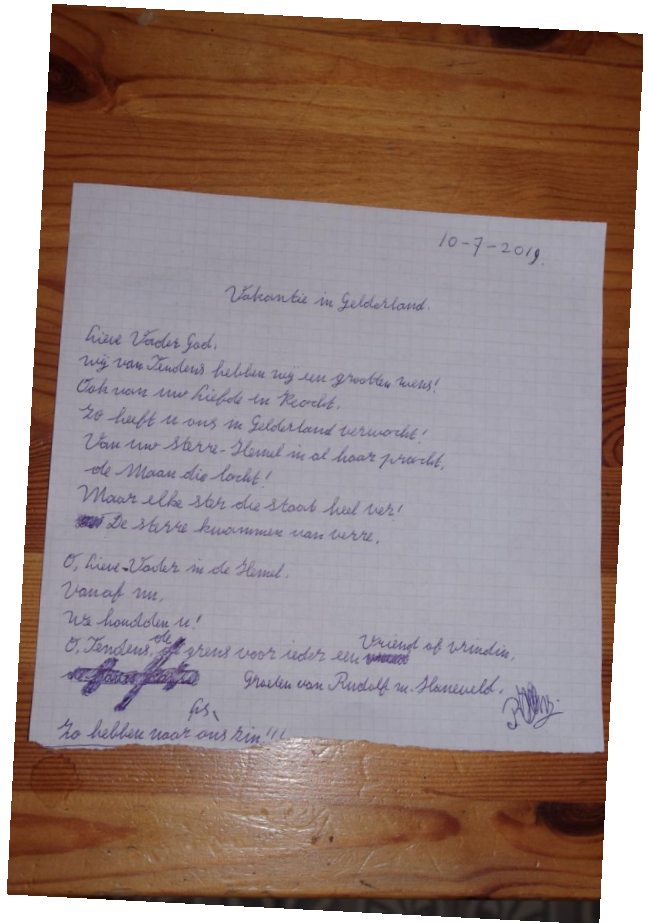 10-7-2019.
Vakantie in Gelderland.
Lieve Vader God,
wij van Tendens hebben wij een grooten wens!
Ook van uw Liefde en Kracht,
Zo heeft u ons in Gelderland verwacht!
Van uw Sterre-Hemel in al haar pracht,
de Maan die lacht!
Maar elke ster die staat heel ver!
De sterre kwammen van verre,
O, Lieve-Vader in de Hemel.
Vanaf nu,
We houdden u!
O, Tendens, de grens voor ieder een Vriend of vrindin,
Groeten van Rudolf m. Haneveld.
Zo hebben naar ons zin!!!